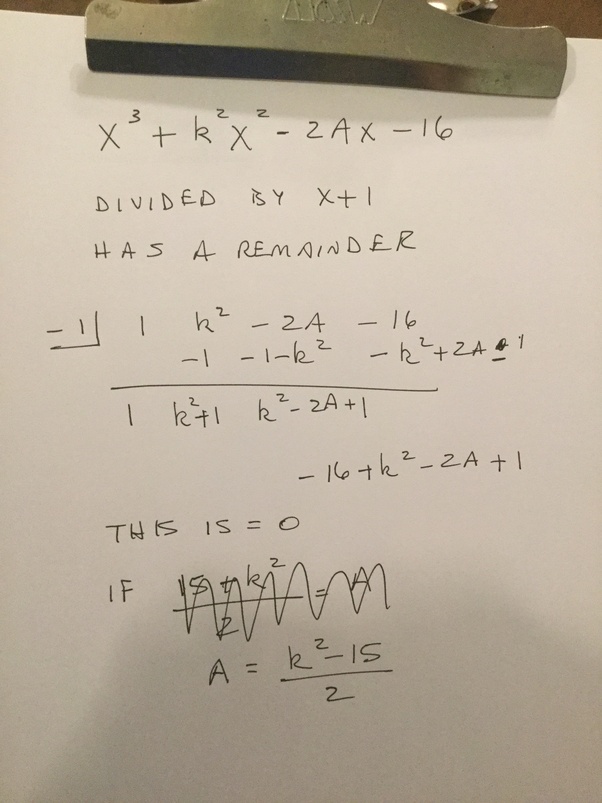 x³ + k²x² - 2Ax - 16
DIVIDED BY x+1
HAS A REMAINDER
-1| 1 k² - 2A - 16
-1 -1-k² - k²+2A - 1
1 k²+1 k²-2A+1
-16+k²-2A+1
THIS IS = 0
IF
A = (k²-15)/2